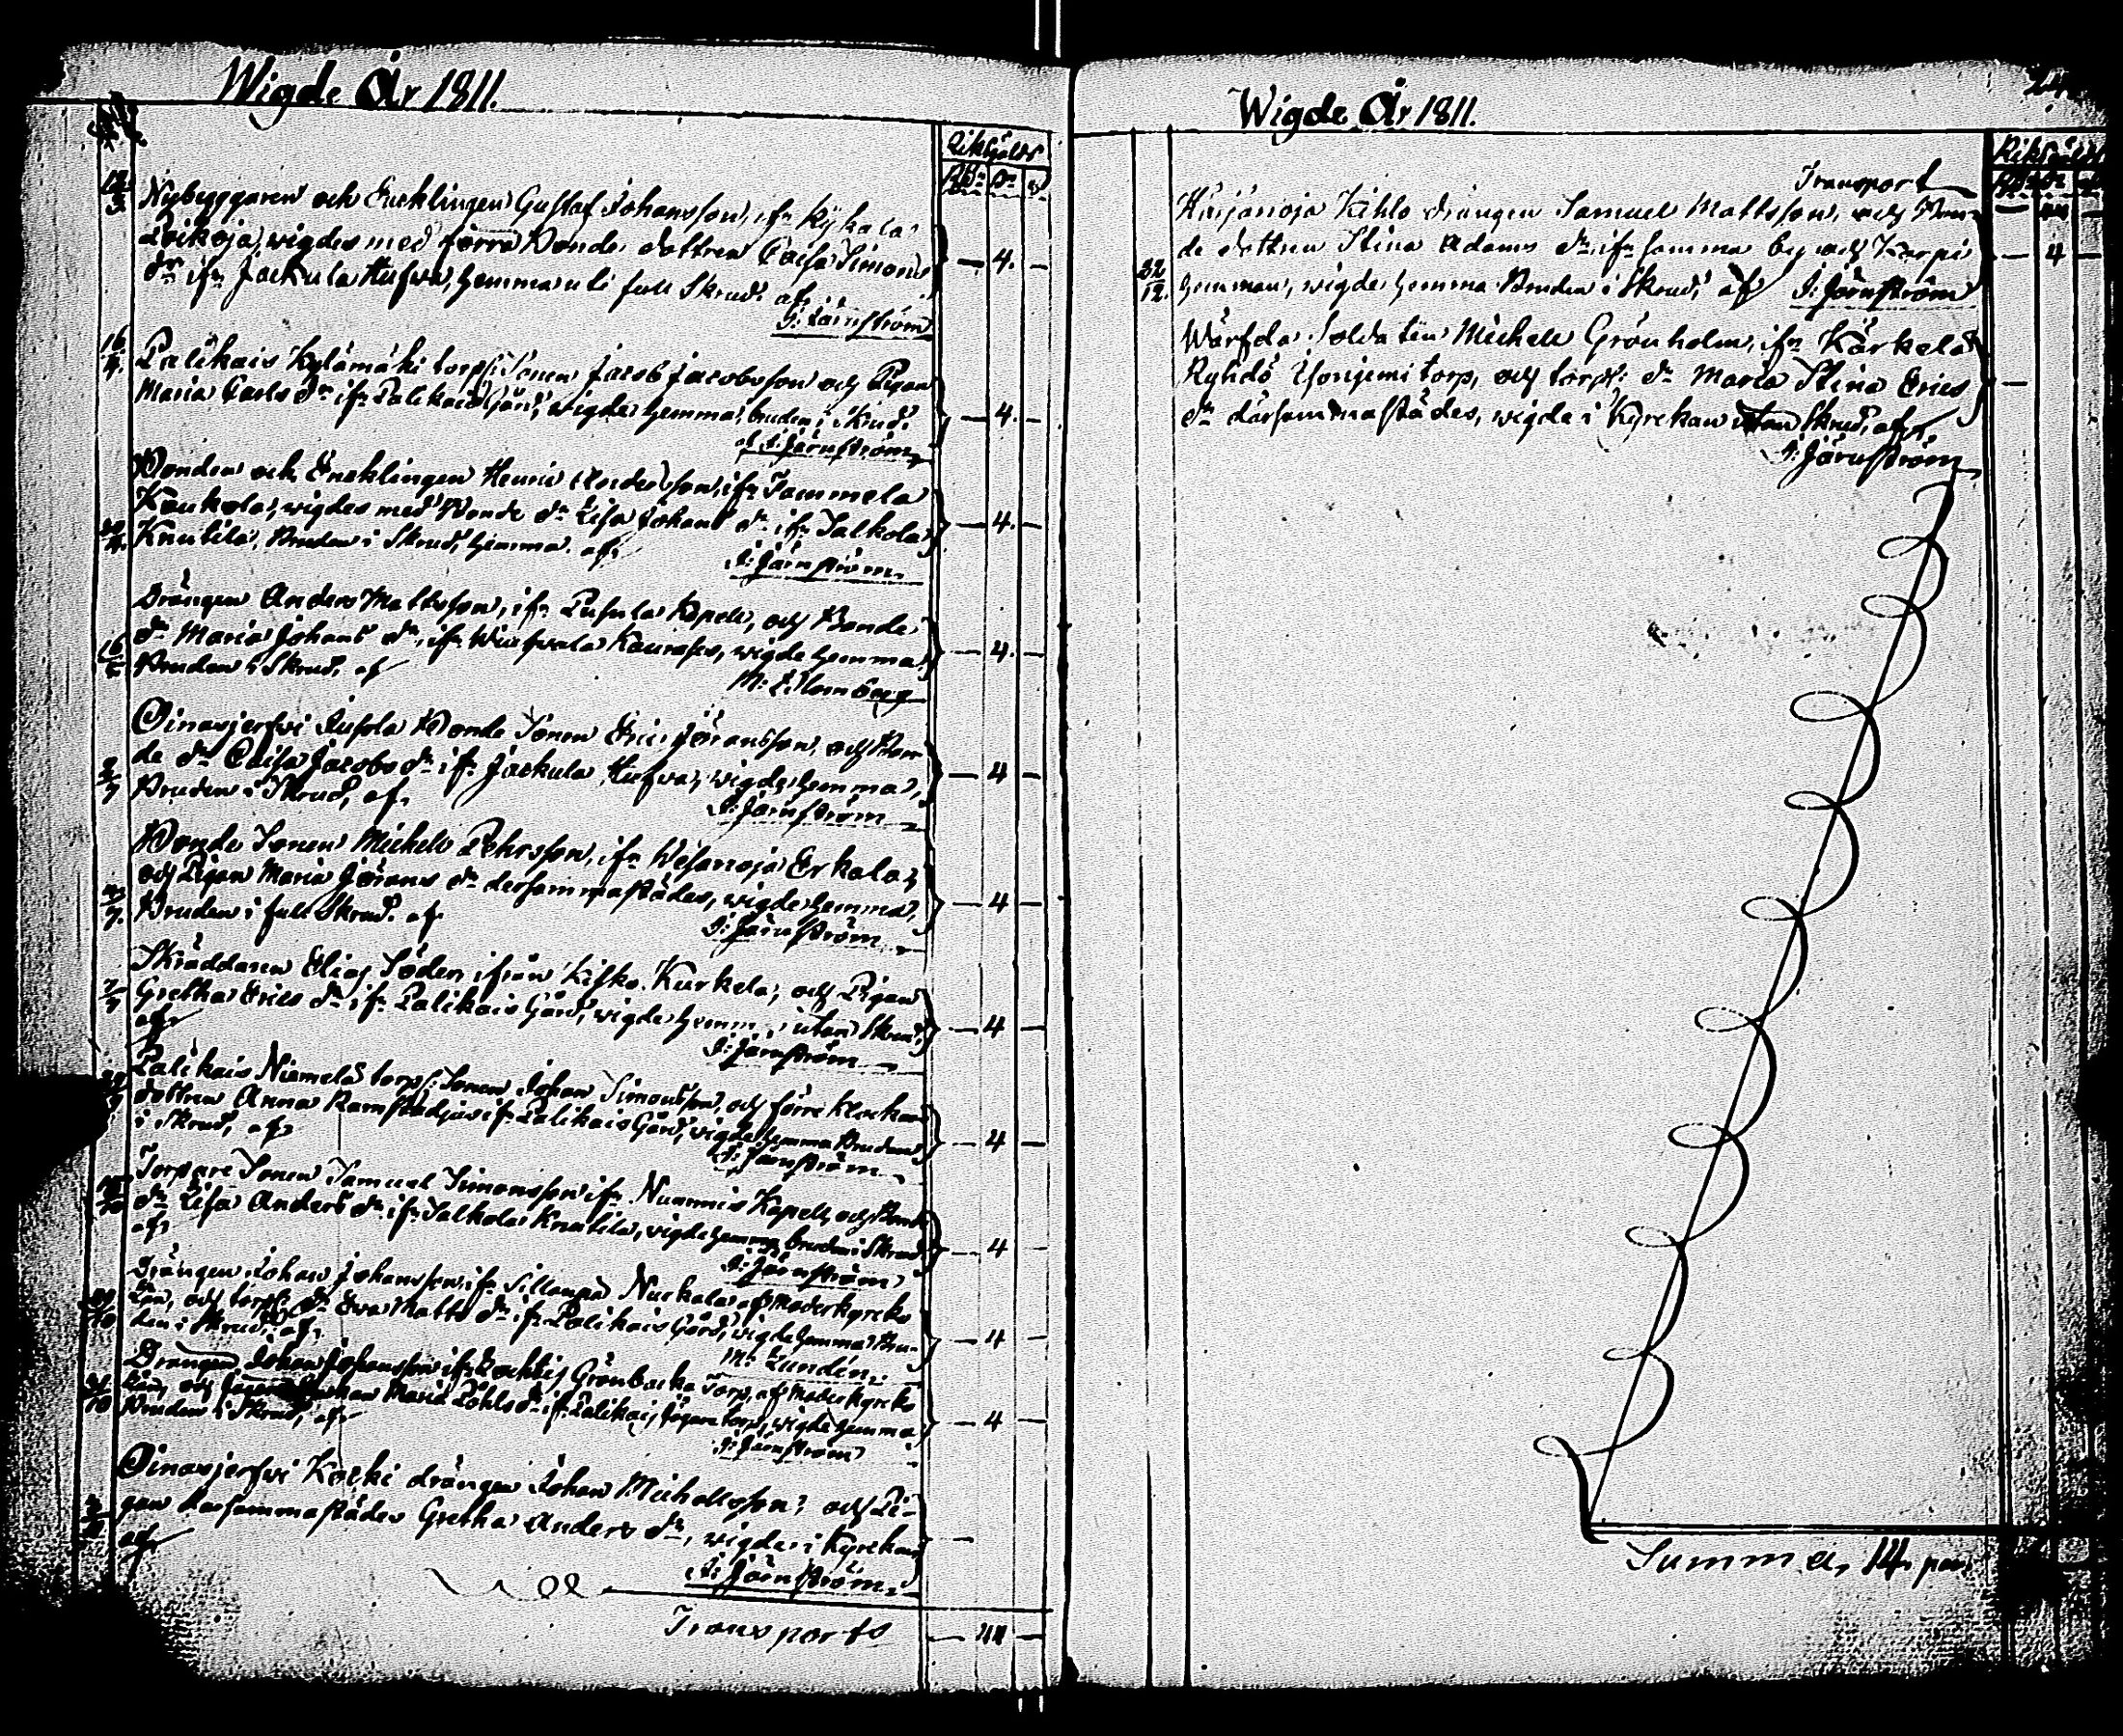 Wigde År 1811.
Riksgälds
12/3 Nybyggaren och Encklingen Gustaf Johansson, ifr.
wigdes med förra Bonde dottren Caisa Simons — 4. —
dr. ifr. Jackula Hufwa, hemma uti full Skrud. af
I: Järnström
16/4. Palikais Kylämäki torps: Sonen Jacob Jacobsson och Pigan
Maria Carls dr. ifr. Palikais Gård, wigde hemma, bruden i Skrud. — 4. —
af I: Järnström
Bonden och Encklingen Henric Andersson, ifr. Tammela
Kaukola, wigdes med Bonde dr. Lisa Johans dr. ifr. Salkola — 4. —
Knutila, Bruden i Skrud, hemma. af
I: Järnström.
Drängen Anders Mattsson, ifr. Pusula Kapell, och Bonde
dr. Maria Johans dr. ifr. wigde hemma — 4. —
Bruden i Skrud, af
M: Blomberg
Oinasjerfvi Bonde Sonen Eric Jöransson, och Bon
de dr. Caisa Jacobs dr. ifr. Jackula Hufwa, wigde hemma, — 4 —
Bruden i Skrud, af
I: Järnström
Bonde Sonen Michell Pehrsson, ifr. Wesanoja Erkola,
och Pigan Maria Jörans dr. dersammastädes, wigde hemma, — 4 —
Bruden i full Skrud. af
I: Järnström
Skräddaren Elias Söder, ifrån Kisko Kurkela, och Pigan
7/7 Gretha Erics dr. ifr. Palikais Gård, wigde hemma, utan Skrud, — 4 —
af
I: Järnström
Palikais Niemelä torps: Sonen Johan Simonsson, och förre Klockare
dottren Anna ifr. Palikais Gård, wigde hemma Bruden — 4 —
i Skrud, af
I: Järnström
Torpare Sonen Samuel Simonsson ifr. Nummis Kapell, och Bonde
dr. Lisa Anders dr. ifr. Salkola Knutila, wigde hemma bruden i Skrud. — 4 —
af
I: Järnström
Drängen Johan Johansson, ifr. Sillanpä Nuckala af Moderkyrko
och torps: dr. Eva Matts dr. ifr. Palikais Gård, wigde hemma Bru- — 4 —
den i Skrud, af
M: Lundén.
Drängen Johan Johansson ifr. Grönbacka Torp, af Moderkyrko
och Maria dr. ifr. Palikais torp, wigde hemma — 4 —
Bruden i Skrud, af
I: Järnström
Oinasjerfvi Kocki drängen Johan Michelsson, och Pi-
gan darsammastädes Gretha Anders dr., wigde i Kyrkan —
af
I: Järnström.
Transporto — 44 —
Wigde År 1811.
Transport — 44 —
Kihlo drängen Samuel Mattsson, och Bon-
de dottren Stina Adams dr. ifr. samma by och Karpi — 4 —
hemman, wigde hemma Bruden i Skrud, af I: Järnström
Wärfda Soldaten Michell Grönholm, ifr. Kärkelä
torp, och torps: dr. Maria Stina Erics —
dr. därsammastädes, wigde i Kyrckan utan Skrud, af
I: Järnström
Summa, 14 par.